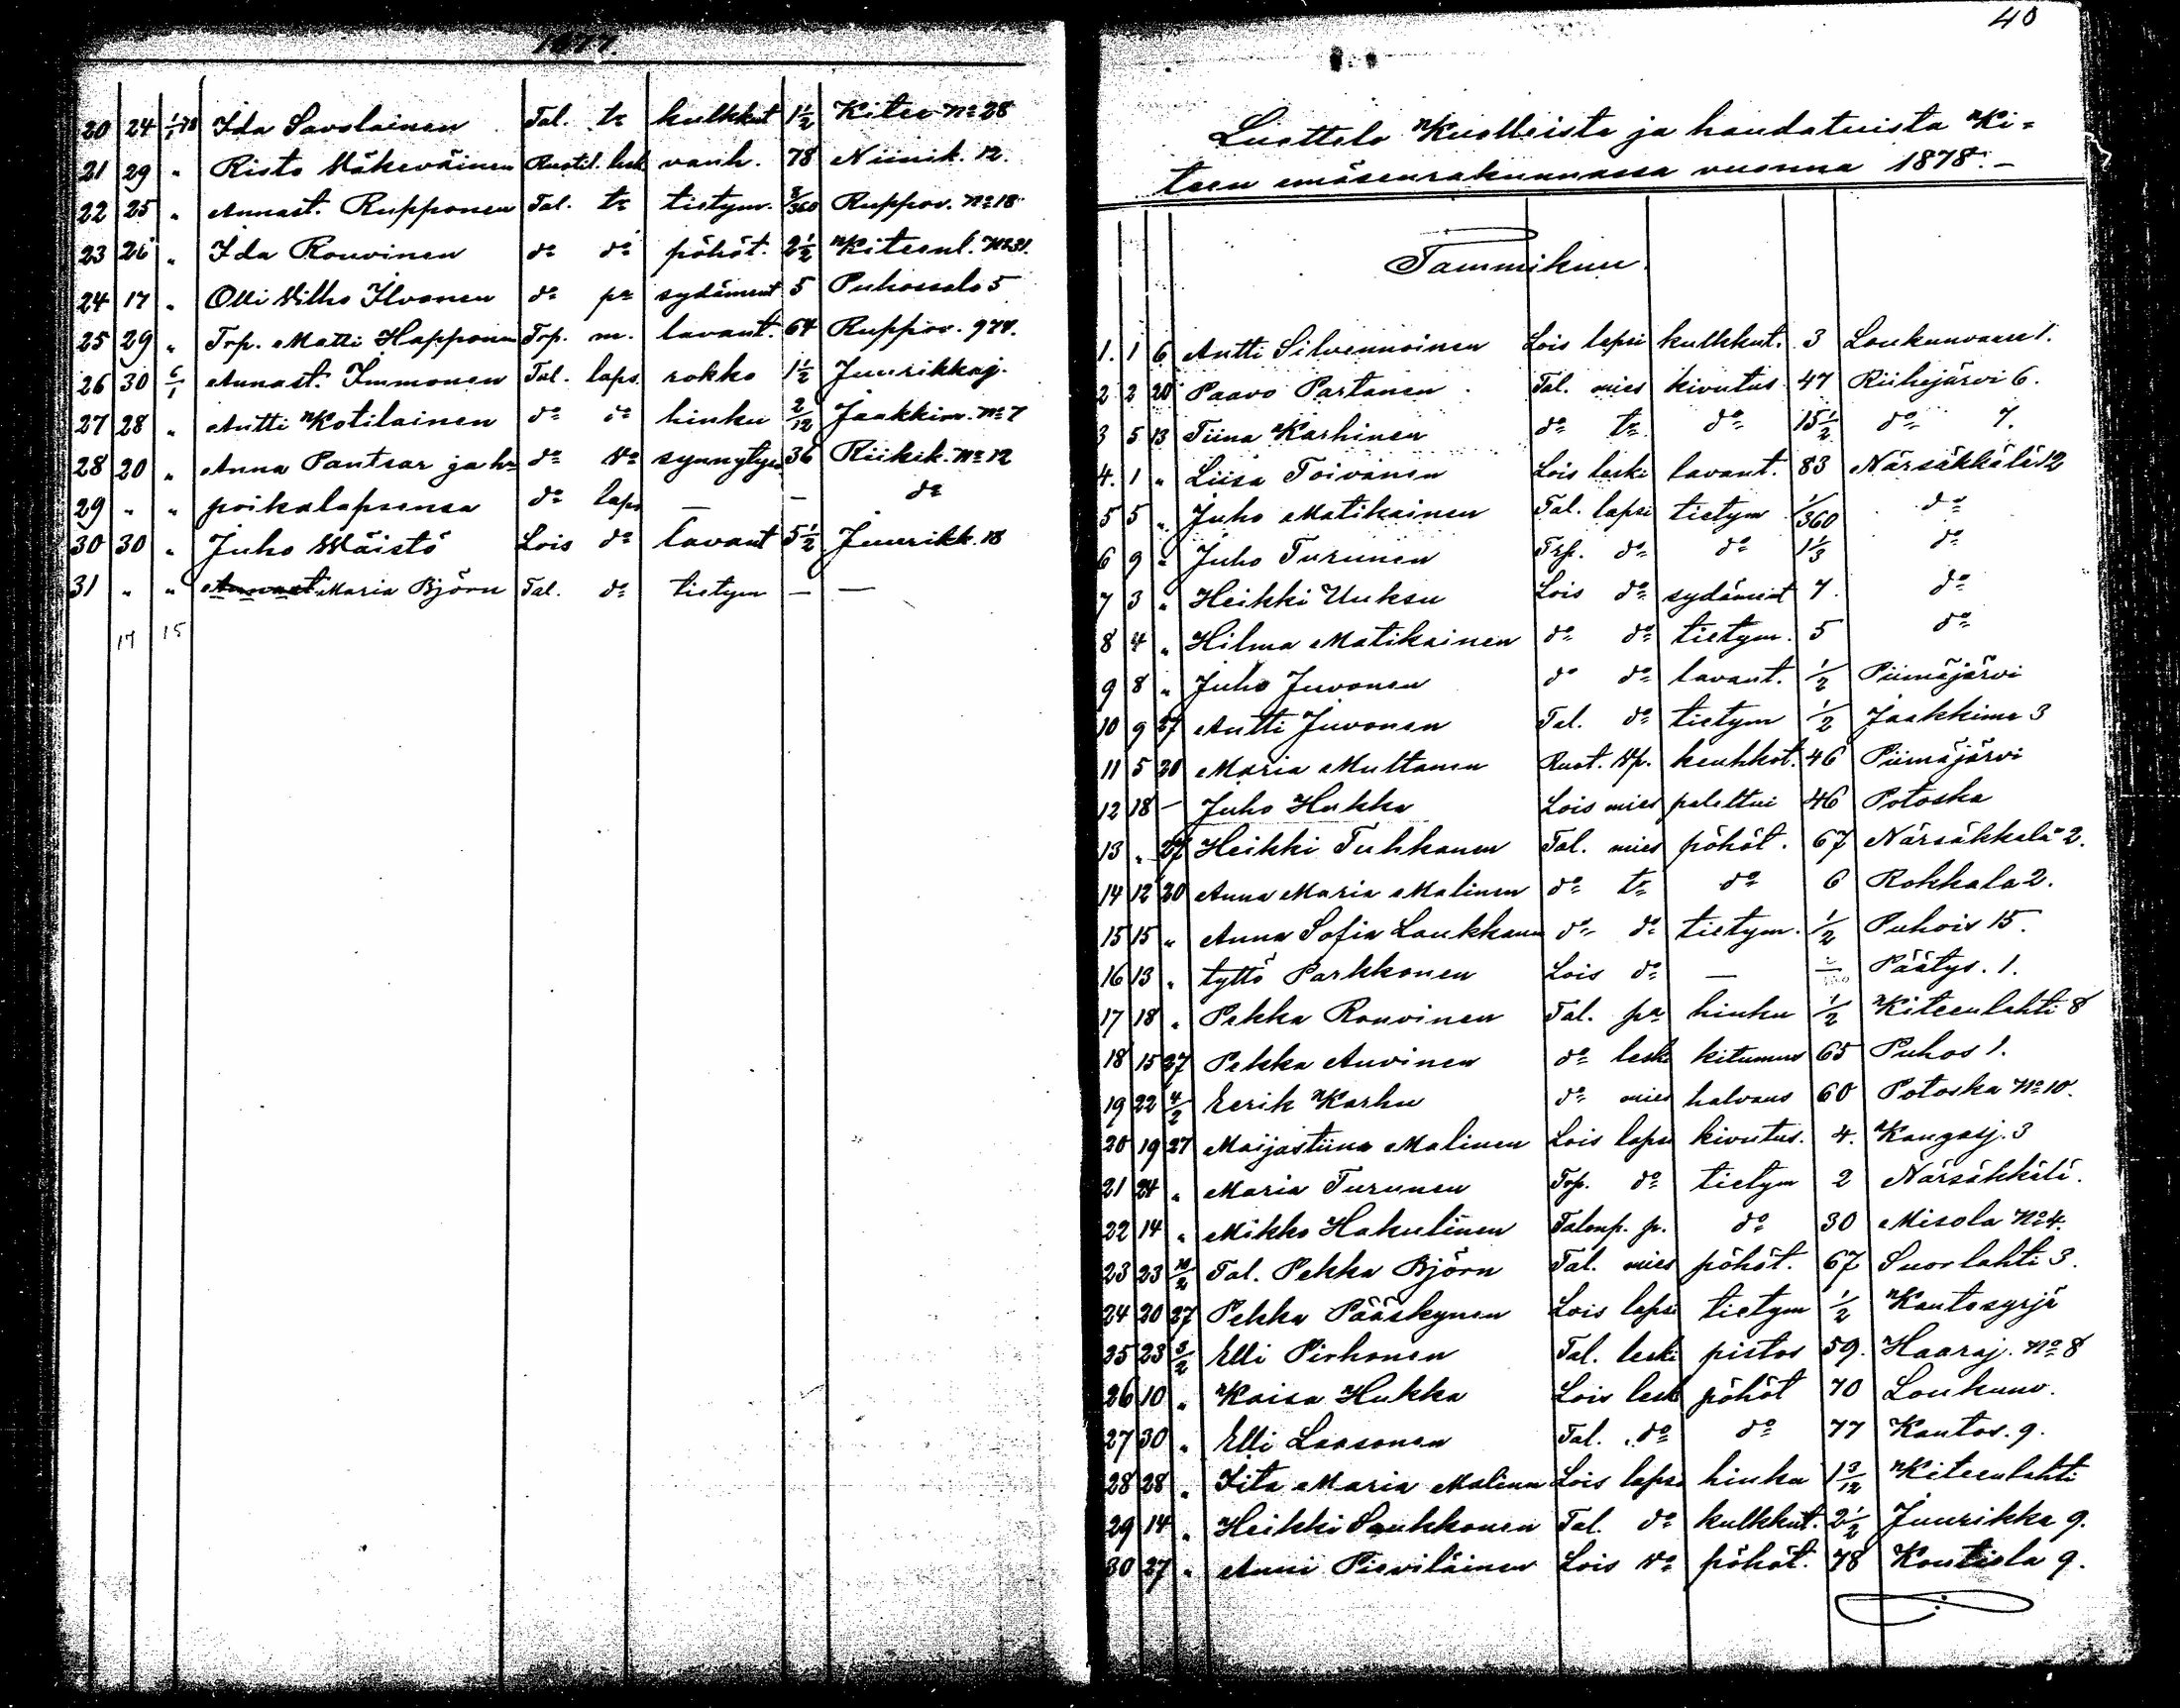 1877.
20 24 1/1 78 Ida Savolainen Tal. tr kulkkut 1 1/2 Kitee No 28
21 29 " Risto Mäkeväinen Rustil. lesk vanh. 78 Niinik. 12.
22 25 " Annast. Rupponen Tal. tr tietym. 8/360 Ruppov. No 18
23 26 " Ida Rouvinen do do pöhöt. 2 1/2 Kiteenl. No 31.
24 17 " Olli Vilho Ilvonen do pa sydäment 5 Puhossalo 5
25 29 " Trp. Matti Happonen Trp. m. lavant. 64 Ruppov. 974.
26 30 6/1 Annast. Immonen Tal. laps. rokko 1 1/2 Juurikkaj.
27 28 " Antti Kotilainen do do hinku 2/12 Jaakkim. No 7
28 20 " Anna Pantsar ja hr do Vo synnytys 36 Riihik. No 12
29 " " poikalapsensa do laps — — do
30 30 " Juho Väistö Lois do lavant 5 1/2 Juurikk. 18
31 " " Annast Maria Björn Tal. do tietym — —
17 15
40
Luettelo Kuolleista ja haudatuista Ki=
teen emäseurakunnassa vuonna 1878. —
Tammikuu.
1. 1 6 Antti Silvennoinen Lois lapsi kulkkut. 3 Loukunvaara 1.
2 2 20 Paavo Partanen Tal. mies kivutus 47 Riihejärvi 6.
3 5 13 Tiina Karhinen do tr do 15 1/2 do 7.
4. 1 " Liisa Toivanen Lois leski lavant. 83 Närsäkkälä 12
5 5 " Juho Matikainen Tal. lapsi tietym 1/360 do
6 9 " Juho Turunen Trp. do do 1 1/3 do
7 3 " Heikki Uuksu Lois do sydäment 7. do
8 4 " Hilma Matikainen do do tietym. 5 do
9 8 " Juho Juvonen do do lavant. 1/2 Piimäjärvi
10 9 27 Antti Juvonen Tal. do tietym 1/2 Jaakkima 3
11 5 20 Maria Multanen Rust. Vp. keuhkot. 46 Piimäjärvi
12 18 — Juho Hukka Lois mies palettui 46 Potoska
13 " 27 Heikki Tuhkanen Tal. mies pöhöt. 67 Närsäkkälä 2.
14 12 20 Anna Maria Malinen do tr do 6 Rokkala 2.
15 15 " Anna Sofia Loukkanen do do tietym. 1/2 Puhois 15.
16 13 " tyttö Parkkonen Lois do — — Päätys. 1.
17 18 " Pekka Rouvinen Tal. pa hinku 1/2 Kiteenlahti 8
18 15 27 Pekka Auvinen do leski kitumus 65 Puhos 1.
19 22 4/2 Eerik Karhu do mies halvaus 60 Potoska No 10.
20 19 27 Maijastiina Malinen Lois lapsi kivutus. 4. Kangasj. 3
21 24 " Maria Turunen Trp. do tietym 2 Närsäkkälä.
22 14 " Mikko Hakulinen Talonp. p. do 30 Misola No 4.
23 23 10/2 Tal. Pekka Björn Tal. mies pöhöt. 67 Suorlahti 3.
24 20 27 Pekka Pääskynen Lois lapsi tietym 1/2 Kantosyrjä
25 23 3/2 Elli Pirhonen Tal. leski pistos 59. Haaraj. No 8
26 10 " Kaisa Hukka Lois lesk pöhöt 70 Loukunv.
27 30 " Elli Laasonen Tal. do do 77 Kantos. 9.
28 28 " Iita Maria Malinen Lois lapsi hinku 1 3/12 Kiteenlahti
29 14 " Heikki Saukkonen Tal. do kulkkut. 2 1/2 Juurikka 9.
30 27 " Anni Pieviläinen Lois Vo pöhöt. 78 Kontiola 9.